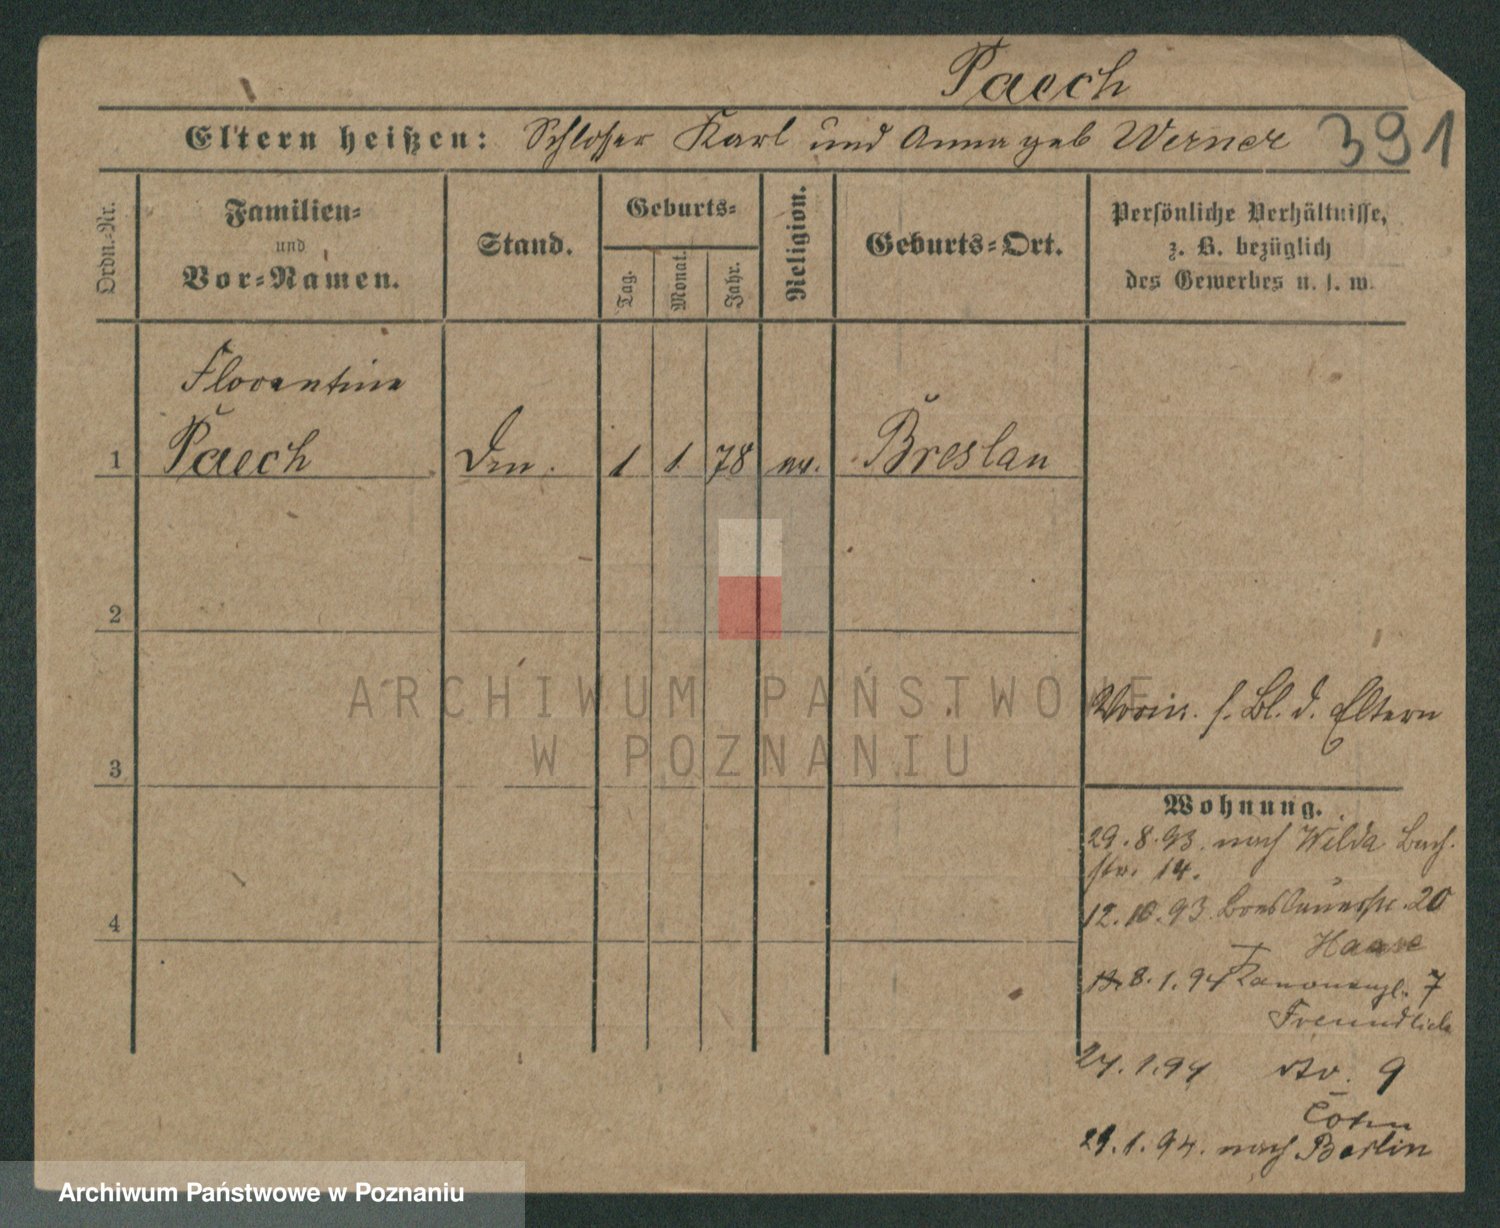 Paech
Eltern heißen: Schlosser Karl und Anna geb Werner 391
Ordn.-Nr.
Familien-
und
Vor-Namen.
Stand.
Geburts-
Tag.
Monat.
Jahr.
Religion.
Geburts-Ort.
Persönliche Verhältnisse,
z. B. bezüglich
des Gewerbes u. s. w.
Florentine
1 Paech 1 1 78 ev. Breslau
2
3
4
s. Bl. d. Eltern
Wohnung.
29.8.93. nach Wilda Bach-
str. 14.
12.10.93. Breslauerstr. 20
Haase
8.1.94 Kanonenpl. 7
Freundlich
24.1.94 9
Cohn
29.1.94. nach Berlin
ARCHIWUM PAŃSTWOWE
W POZNANIU
Archiwum Państwowe w Poznaniu